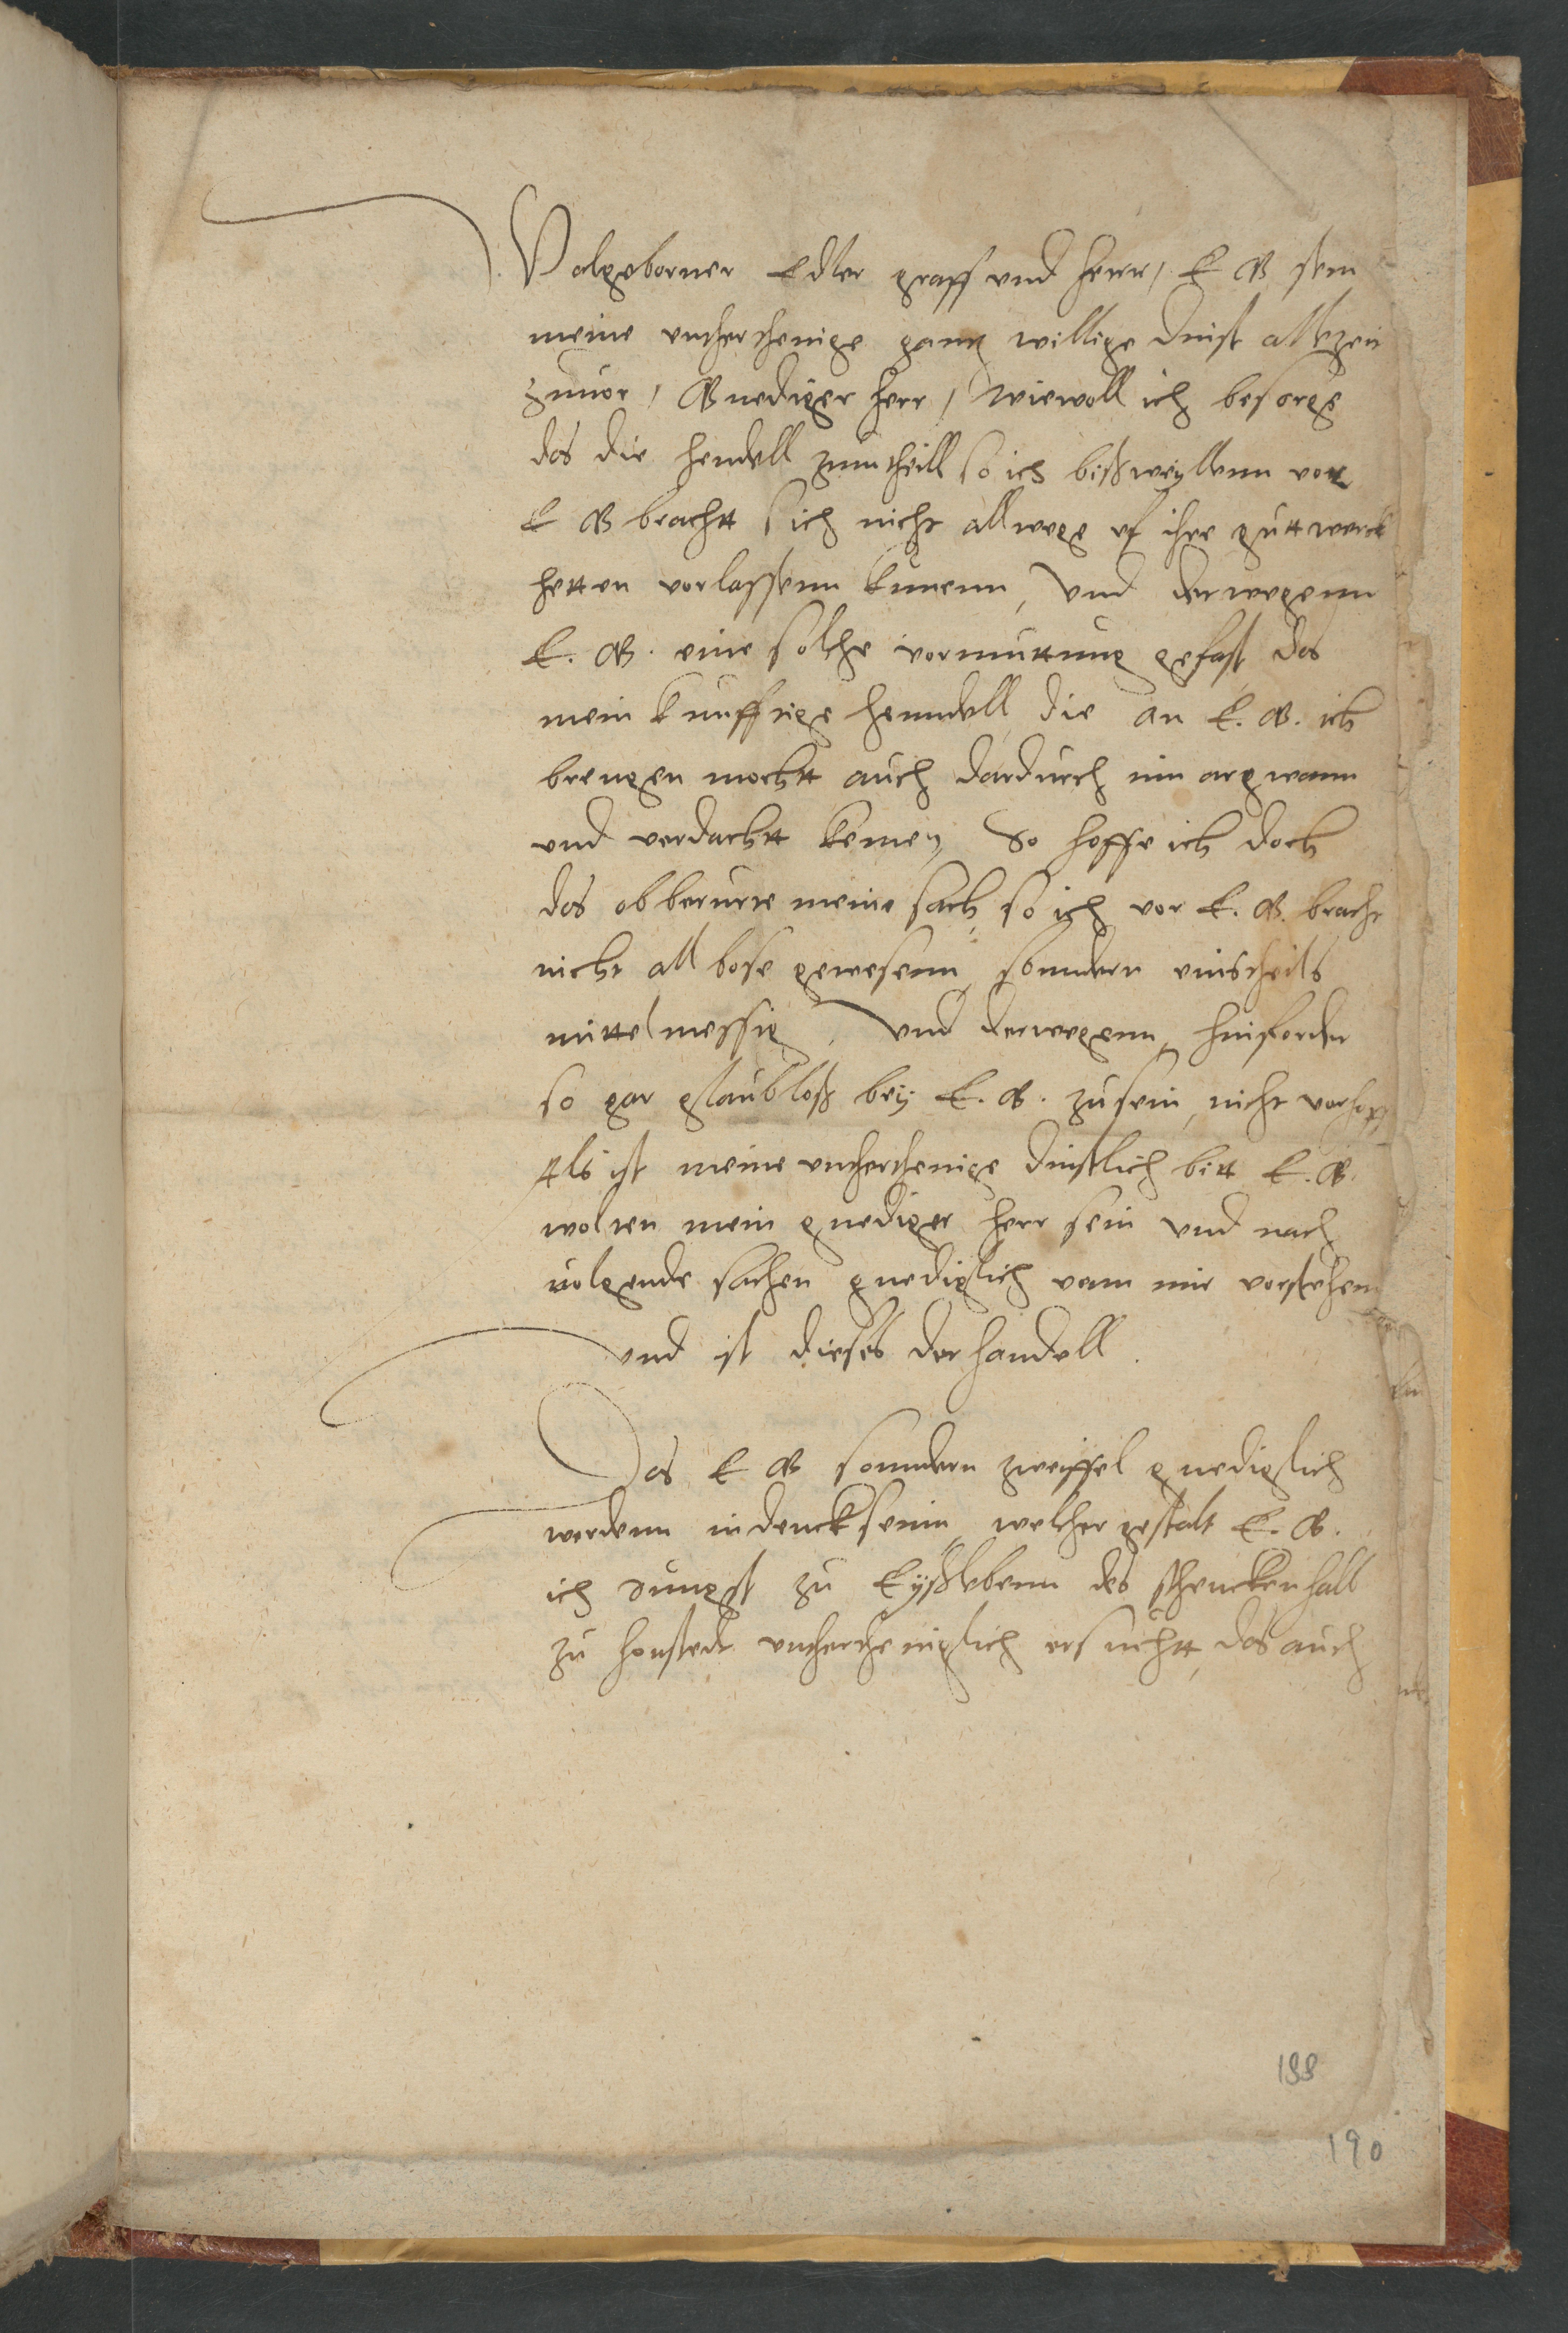 Wolgeborner Edler graff und herr, E G sein
meine undertthenige gantz willige dinst allezeit
zuuor, Gnediger herr, wiewoll ich besorge
das die hendell zumtheill so ich bißweyllenn vor
E G bracht sich nicht allwege uf ihre gutt werck
hetten vorlassenn kunenn, und derwegenn
E. G. eine solche vormuttung gefast das
mein kunfftige henndell, die an E. G. ich
brengen mochtt auch dardurch inn argwann
und verdachtt kemen, So hoffe ich doch
das obberurte meine sach, so ich vor E. G. bracht
nicht all bose gewesenn, sonndern einstheils
mittelmessig, und derwegenn, hinforder
so gar glaubloß bey E. G. zusein, nicht vorhoff
Als ist meine undertthenige dinstlich bitt E. G.
wolten mein gnediger herr sein und nach
uolgende sachen gnediglich vonn mir vorstehenn
und ist dieses der handell.
Das E G sonndern zweiffel gnediglich
werdenn indenck seinn, welcher gestalt E. G.
ich Jungst zu Eyßlebenn des schencken halb
zu honstedt undertheniglich ersuchtt, das auch
199
190